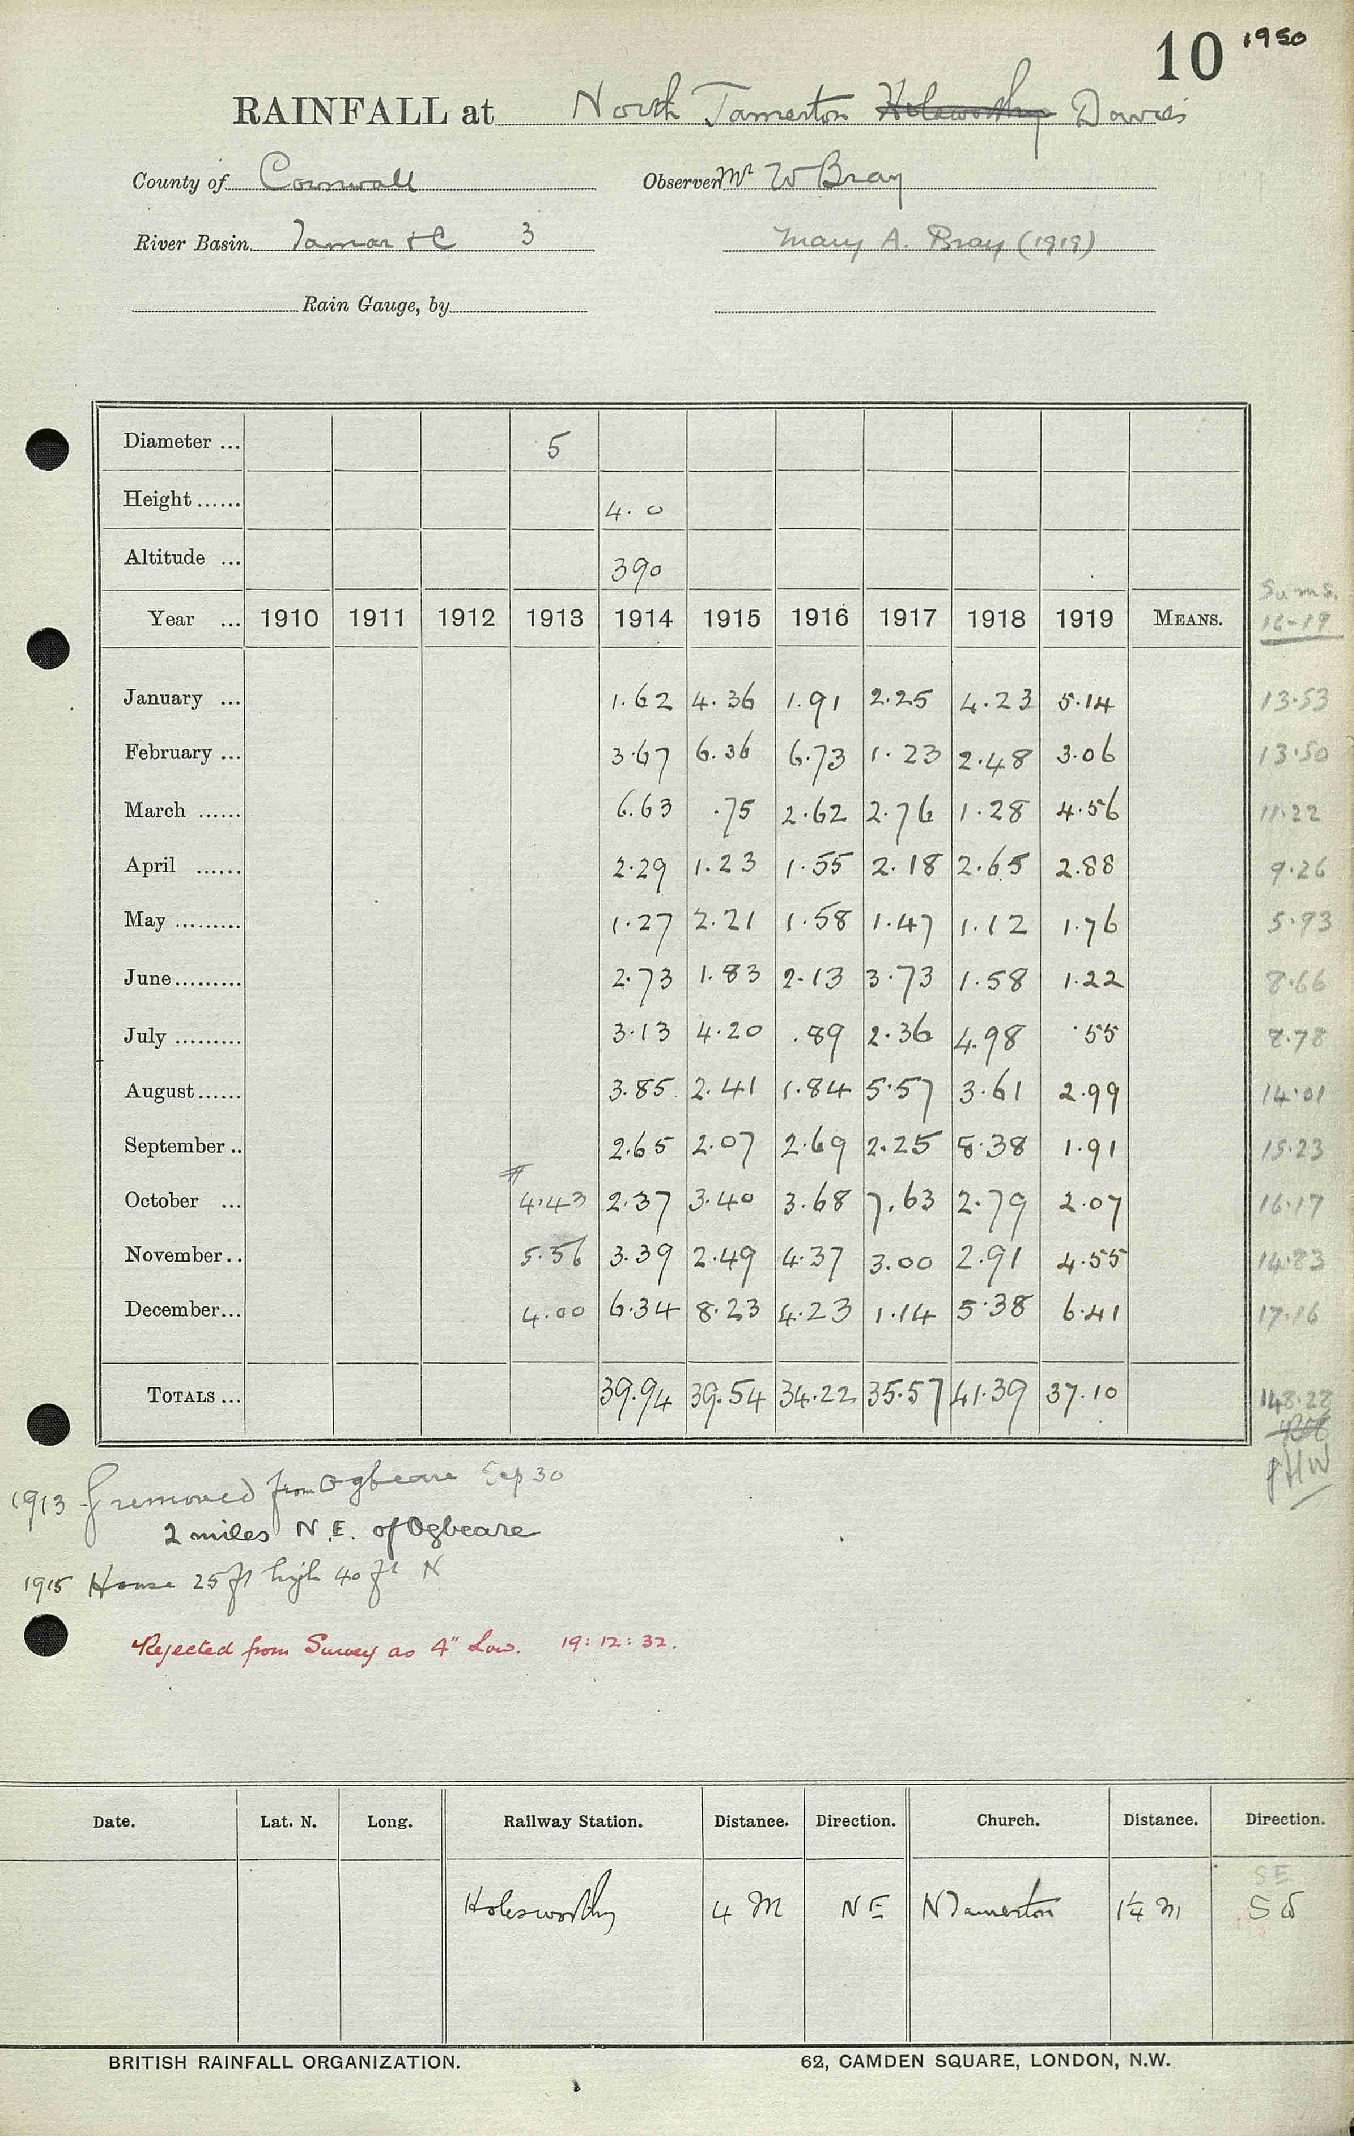 10 1950
RAINFALL at North Tamerton Holsworthy Davis
County of Cornwall Observer Mr W Bray
River Basin Tamar &c 3 Mary A. Bray (1919)
Rain Gauge, by
Diameter ... 5
Height ...... 4.0
Altitude ... 390
Sums.
Year ... 1910 1911 1912 1913 1914 1915 1916 1917 1918 1919 MEANS. 16-19
January ... 1.62 4.36 1.91 2.25 4.23 5.14 13.53
February ... 3.67 6.36 6.73 1.23 2.48 3.06 13.50
March ...... 6.63 .75 2.62 2.76 1.28 4.56 11.22
April ...... 2.29 1.23 1.55 2.18 2.65 2.88 9.26
May ......... 1.27 2.21 1.58 1.47 1.12 1.76 5.93
June ......... 2.73 1.83 2.13 3.73 1.58 1.22 8.66
July ......... 3.13 4.20 .89 2.36 4.98 .55 8.78
August ...... 3.85 2.41 1.84 5.57 3.61 2.99 14.01
September .. 2.65 2.07 2.69 2.25 8.38 1.91 15.23
October ... 4.43 2.37 3.40 3.68 7.63 2.79 2.07 16.17
November .. 5.56 3.39 2.49 4.37 3.00 2.91 4.55 14.83
December ... 4.00 6.34 8.23 4.23 1.14 5.38 6.41 17.16
TOTALS ... 39.94 39.54 34.22 35.57 41.39 37.10 148.28
1913 G removed from Ogbeare Sep 30
2 miles N.E. of Ogbeare
1915 House 25 ft high 40 ft N
Rejected from Survey as 4" Low. 19:12:32.
Date. Lat. N. Long. Railway Station. Distance. Direction. Church. Distance. Direction.
SE
Holsworthy 4 M NE N Tamerton 1¼ M SW
BRITISH RAINFALL ORGANIZATION. 62, CAMDEN SQUARE, LONDON, N.W.